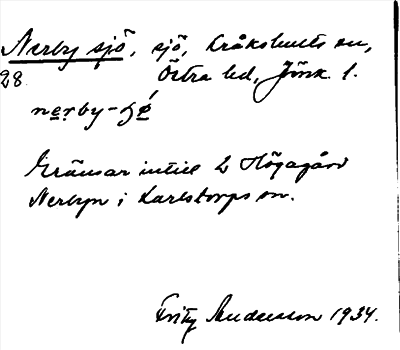 Nerby sjö, sjö, Kråkshults sn,
28. Östra hd, Jönk. l.
nerby-ʃǿ
Gränsar intill L Högagård
Nerbyn i Karlstorps sn.
Fritz Andersson 1934.